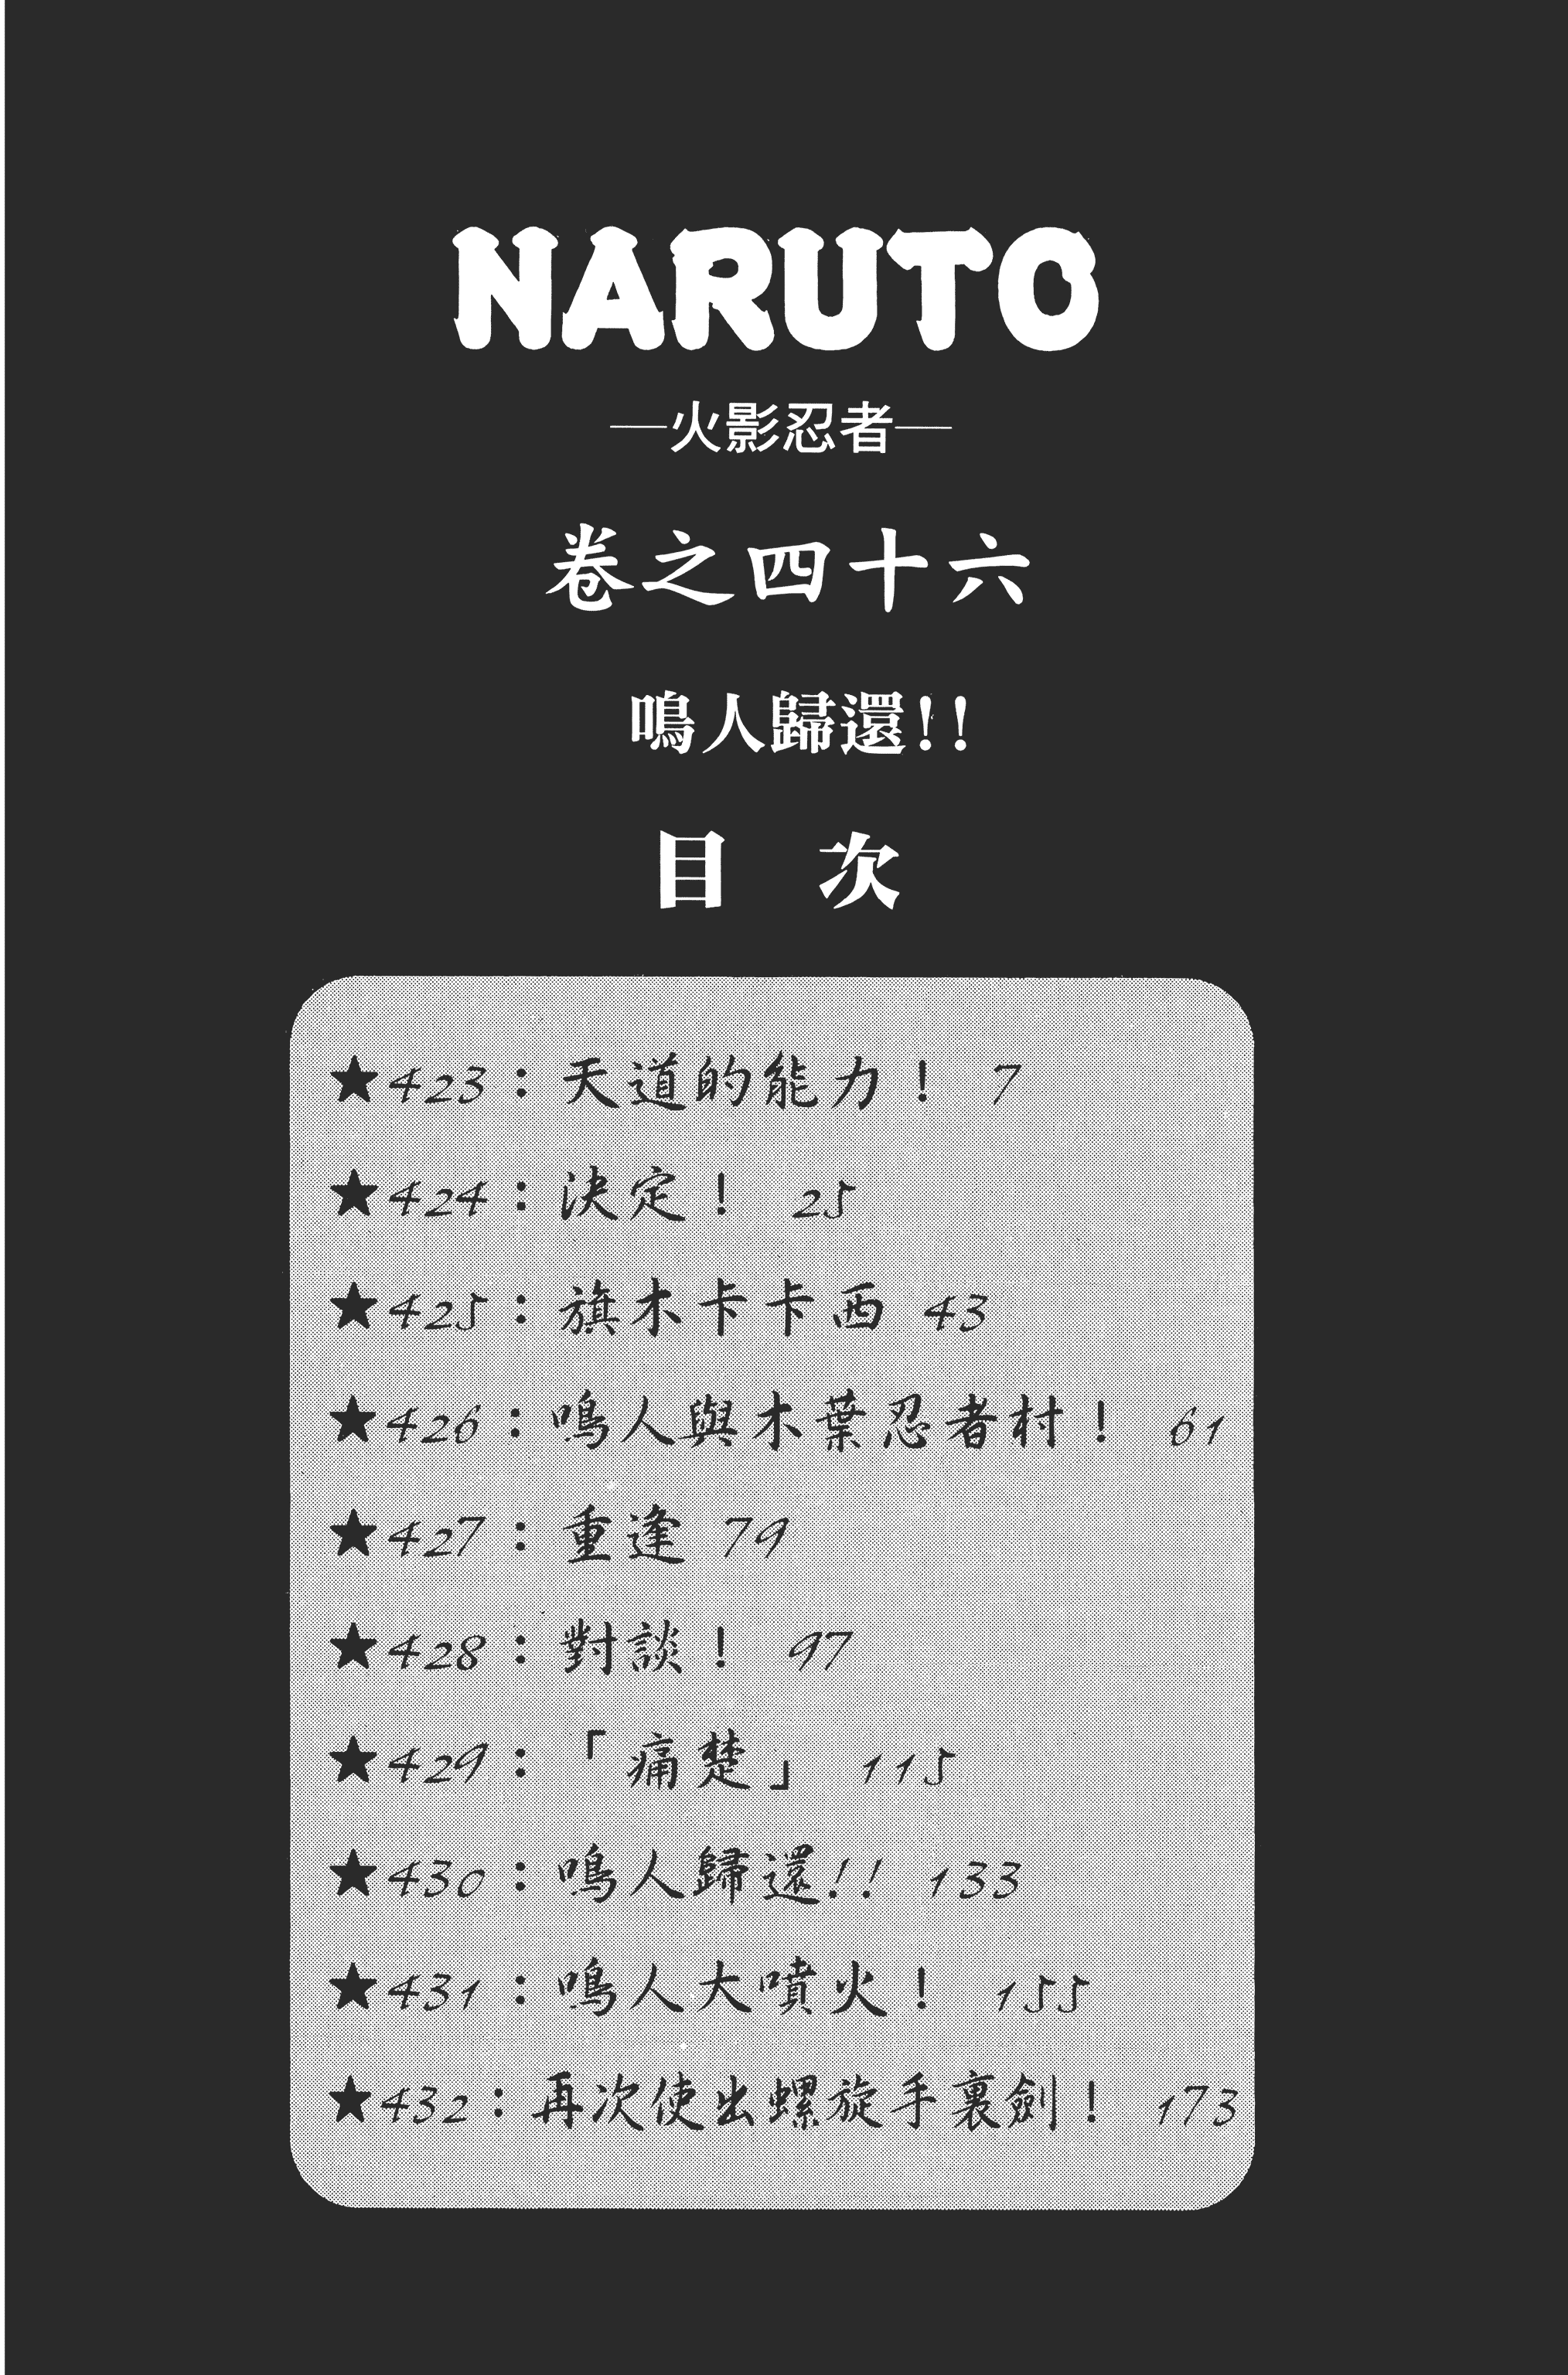 NARUTO
—火影忍者—
卷之四十六
鳴人歸還!!
目 次
★423：天道的能力！ 7
★424：決定！ 25
★425：旗木卡卡西 43
★426：鳴人與木葉忍者村！ 61
★427：重逢 79
★428：對談！ 97
★429：「痛楚」 115
★430：鳴人歸還!! 133
★431：鳴人大噴火！ 155
★432：再次使出螺旋手裏劍！ 173